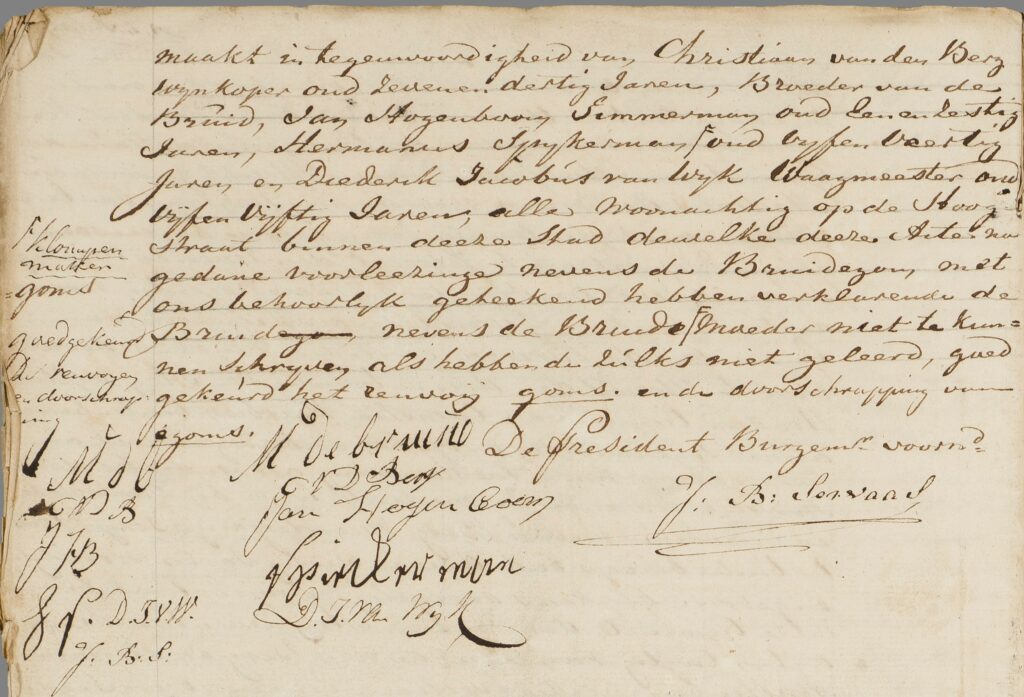 maakt in tegenwoordigheid van Christiaan van den Berg
Wynkoper oud Zevenen dertig Jaren, Broeder van de
Bruid, Jan Hogenboom Timmerman oud Eenen Zestig
Jaren, Hermanus Spykerman oud Vyfen Veertig
Jaren en Diederik Jacobus van Wyk Waagmeester oud
Vyfen Vyftig Jaren, alle Woonachtig op de Hoog
straat binnen deeze Stad dewelke deeze Acte na
gedane voorleezinge nevens de Bruidegom met
ons behoorlyk geteekend hebben verklarende de
Bruidegom, nevens de Bruids Moeder niet te kun-
nen schryven als hebbende Zulks niet geleerd, goed
gekeurd het renvoij goms. en de doorschrapping van
egoms.
klompen
maker
goms
goedgekeurd
De renvoyen
en doorschrap-
ing
M d b
C V D B
J H B
J S. D. J. V. W.
J. B. S.
M de bruino
C V D Berg
Jan Hogen boom
Spiekerman
D. J. Van Wyk
De President Burgemr. voornd.
J. B. Servaas